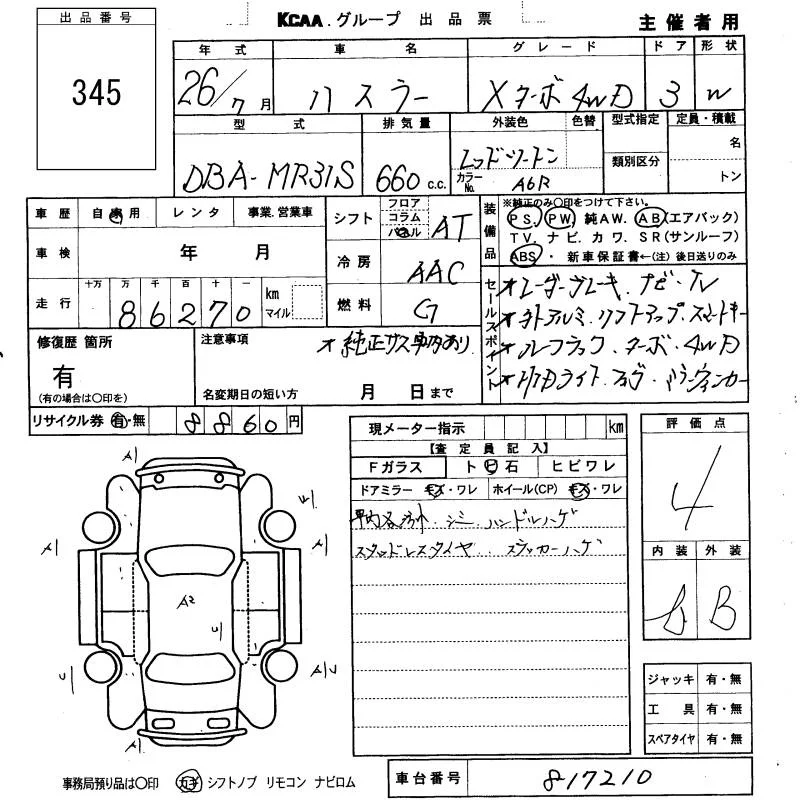 出品番号
345
KCAA.グループ 出品票
主催者用
年式 車名 グレード ドア 形状
26/7月 ハスラー Xターボ 4WD 3 W
型式 排気量 外装色 色替 型式指定 定員・積載
名
DBA-MR31S 660 c.c. レッドツートン 類別区分
カラーNo. A6R トン
車歴 自家用 レンタ 事業.営業車
シフト フロア コラム パネル AT
装備品 ※純正のみ〇印をつけて下さい。
PS. PW. 純AW. AB(エアバック)
TV. ナビ. カワ. SR(サンルーフ)
ABS・ 新車保証書←(注) 後日送りのみ
車検 年 月
冷房 AAC
走行 十万 万 千 百 十 一 km マイル
86270
燃料 G
セールスポイント
レーダーブレーキ.ナビ・TV
リフトアップ.スマートキー
ルーフラック.ターボ.4WD
修復歴 箇所
有
(有の場合は〇印を)
注意事項
純正サス車内あり
名変期日の短い方 月 日まで
リサイクル券 有・無 8860円
現メーター指示 km
【査定員記入】
Fガラス ト ビ 石 ヒビワレ
ドアミラー キズ・ワレ ホイール(CP) キズ・ワレ
シミ ハンドルハゲ
スタッドレスタイヤ ステッカーハゲ
評価点
4
内装 外装
B
A1
A1
A1
A2
A1
ジャッキ 有・無
工具 有・無
スペアタイヤ 有・無
事務局預り品は〇印 カギ シフトノブ リモコン ナビロム
車台番号 817210